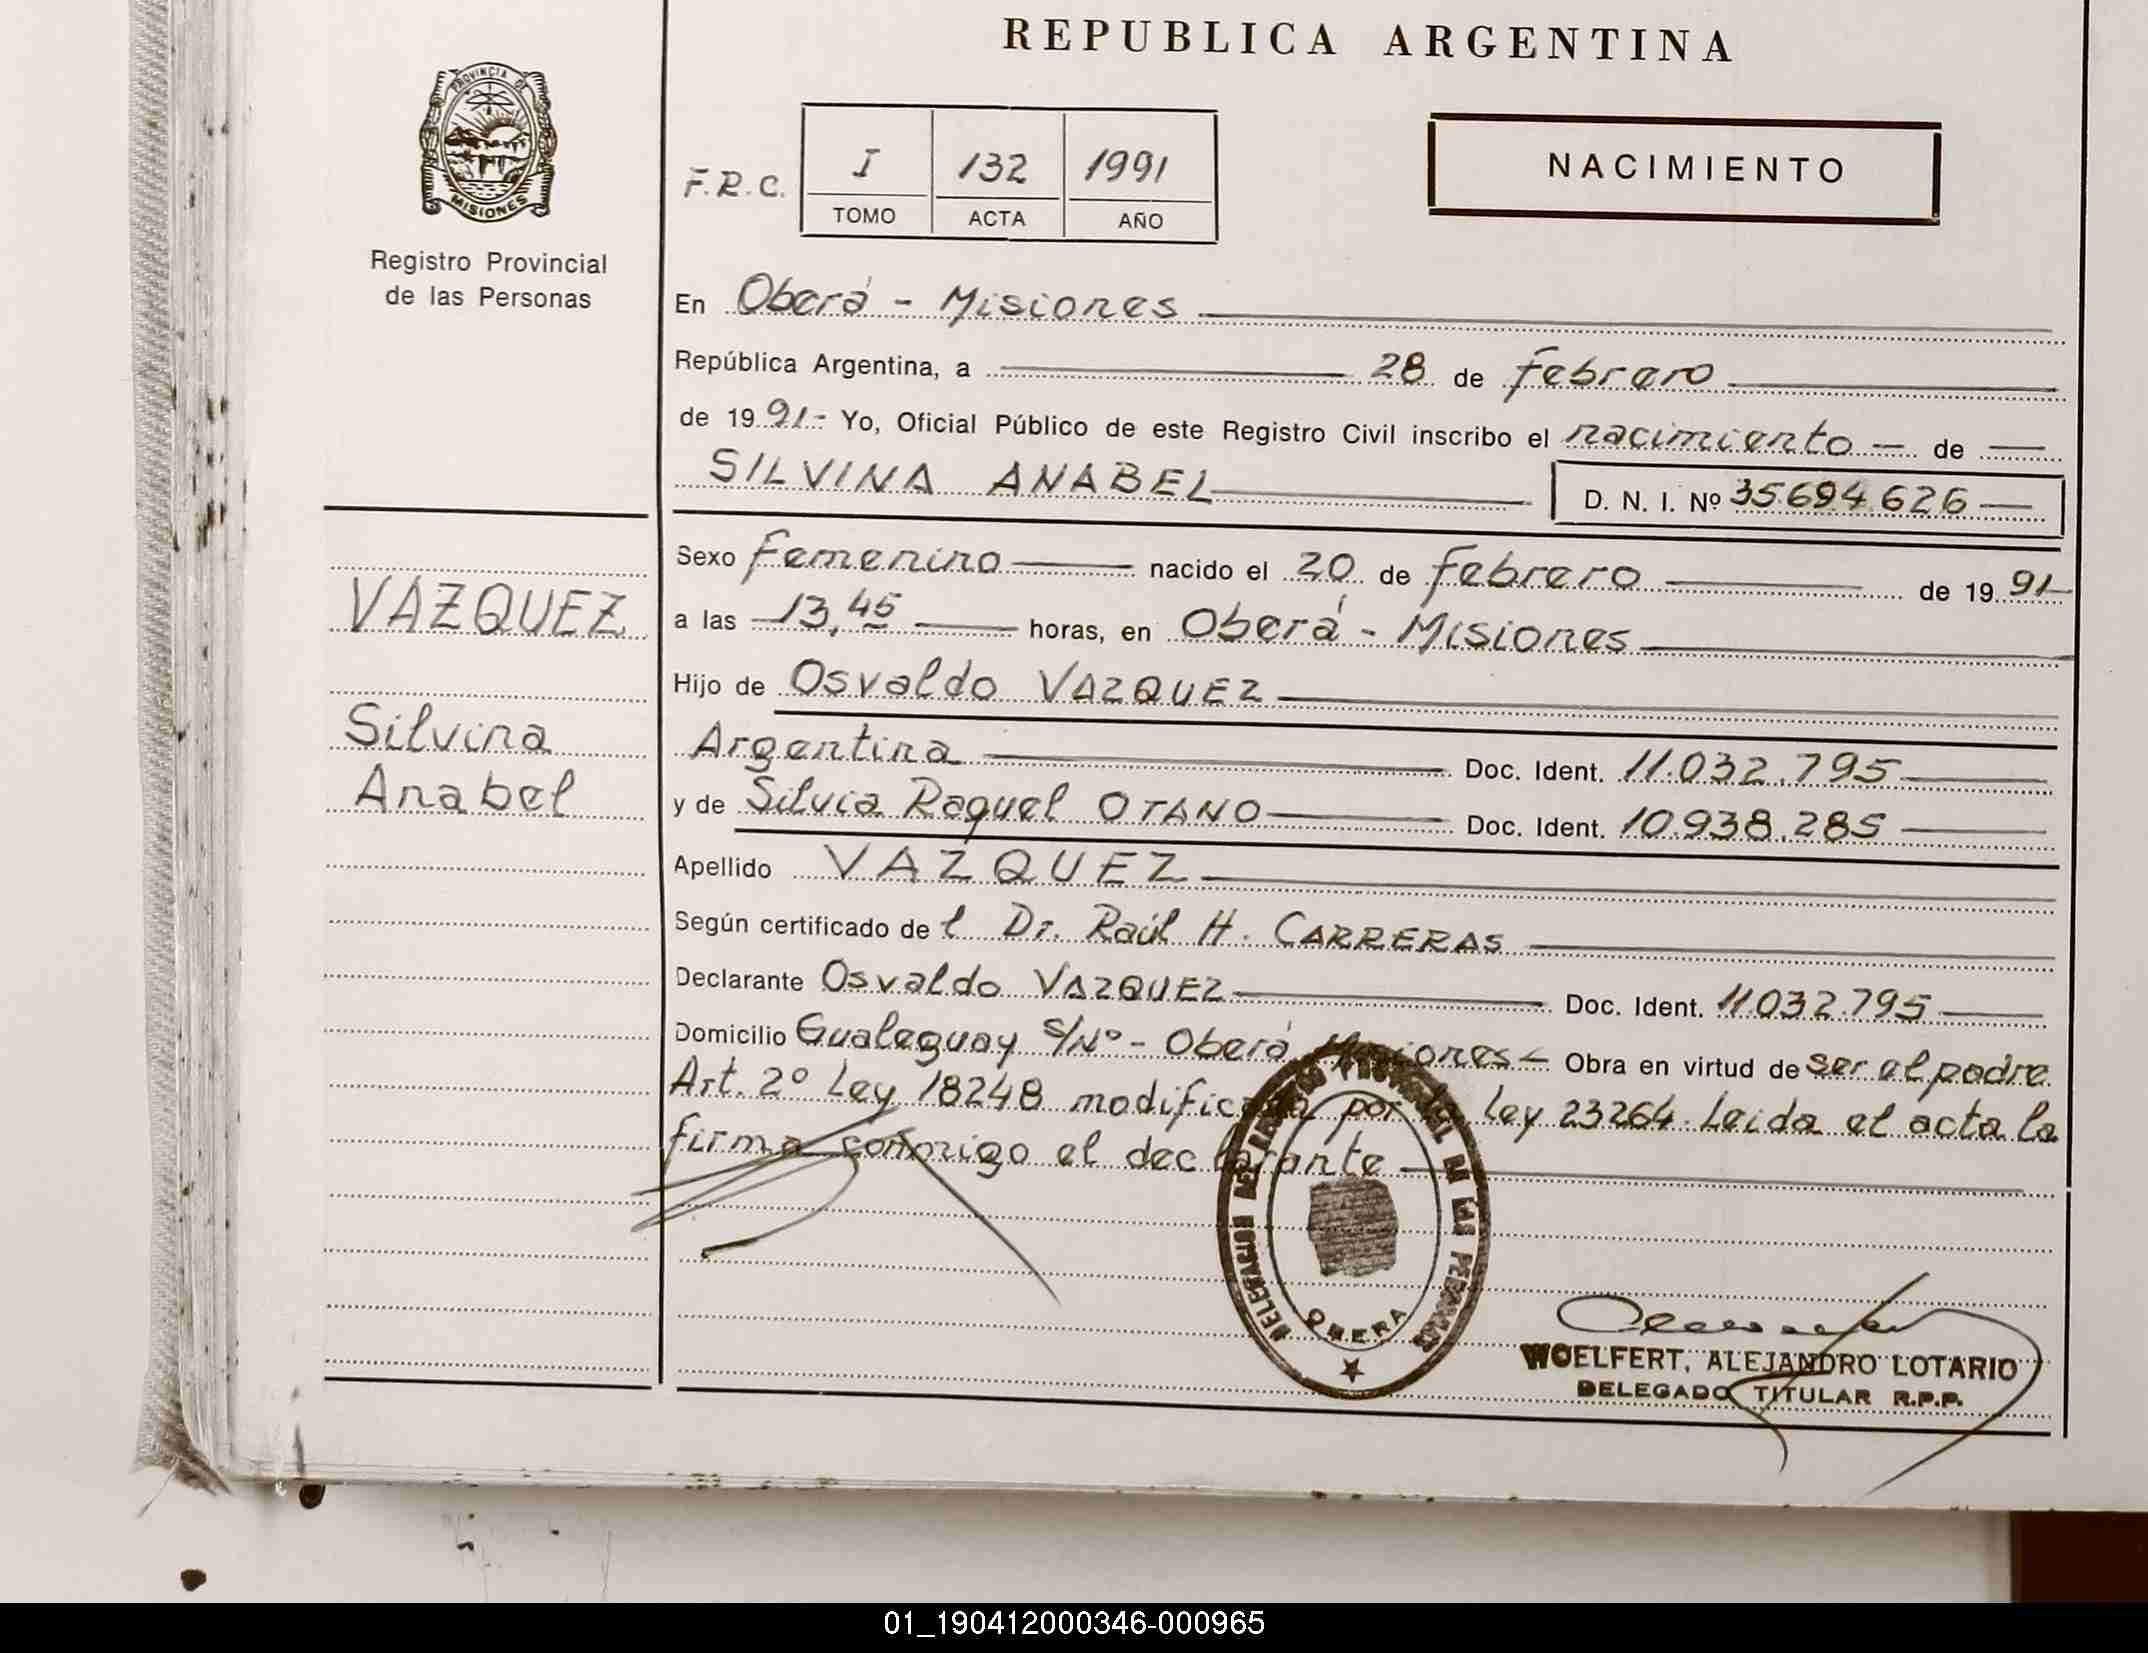 REPUBLICA ARGENTINA
PROVINCIA DE
MISIONES
Registro Provincial
de las Personas
F.R.C.
I 132 1991
TOMO ACTA AÑO
NACIMIENTO
En Oberá - Misiones
República Argentina, a 28 de Febrero
de 1991.- Yo, Oficial Público de este Registro Civil inscribo el nacimiento - de
SILVINA ANABEL D. N. I. Nº 35.694.626
Sexo Femenino nacido el 20 de Febrero de 1991
a las 13,45 horas, en Oberá - Misiones
Hijo de Osvaldo VAZQUEZ
Argentina Doc. Ident. 11.032.795
y de Silvia Raquel OTANO Doc. Ident. 10.938.285
Apellido VAZQUEZ
Según certificado de l Dr. Raúl H. CARRERAS
Declarante Osvaldo VAZQUEZ Doc. Ident. 11.032.795
Domicilio Gualeguay S/Nº - Oberá Misiones - Obra en virtud de ser el padre
Art. 2º Ley 18248 modificada por la Ley 23264. Leida el acta la
firma conmigo el declarante
VAZQUEZ
Silvina
Anabel
DELEGACION DEL REGISTRO PROVINCIAL DE LAS PERSONAS
OBERA
WOELFERT, ALEJANDRO LOTARIO
DELEGADO TITULAR R.P.P.
01_190412000346-000965